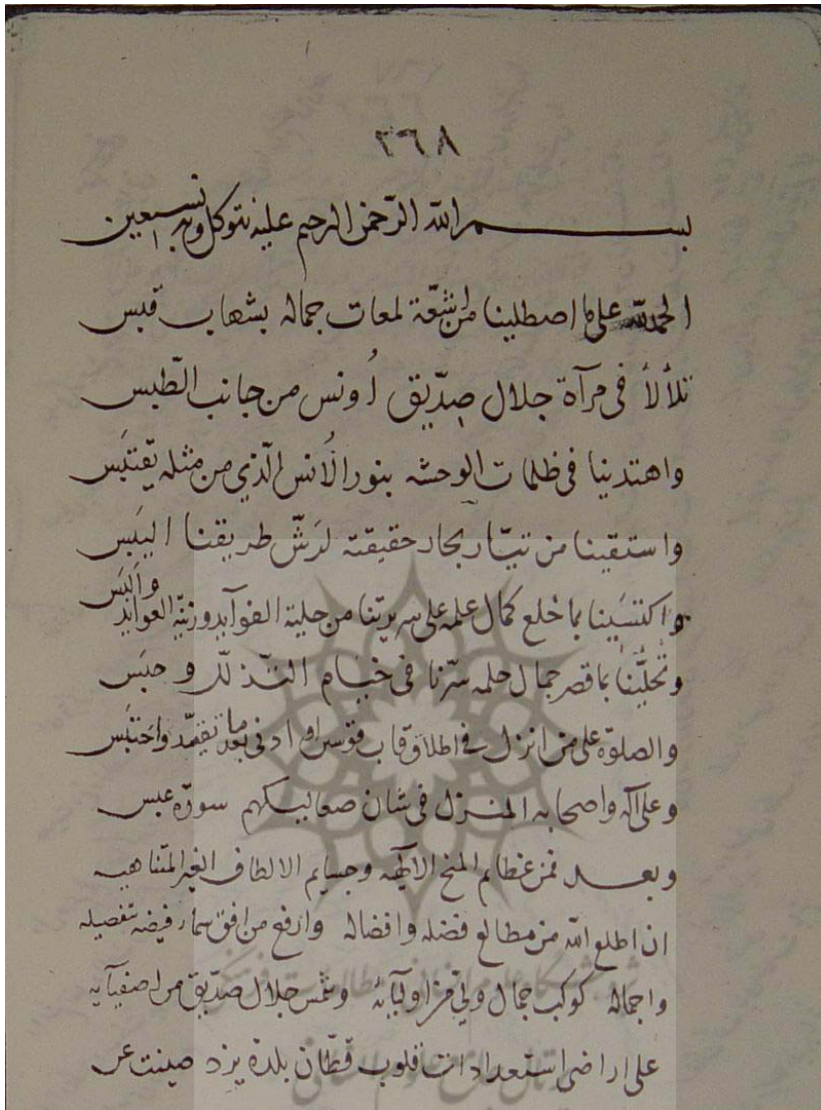 ٣٦٨
بسم الله الرحمن الرحيم عليه نتوكل وبه نستعين
الحمدلله على ما اصطلينا من اشعّة لمعات جماله بشهاب قبس
تلألأ فى مرآة جلال صدّيق اُونس من جانب الطّبس
واهتدينا فى ظلمات الوحشه بنور الاُنس الّذي من مثله يقتبس
واستقينا من تيّار بحار حقيقته لرَشّ طريقنا اليبس
واكتسَينا بما خلع كمال علمه على سريرتنا من حلية الفوآيد وزينة العوايد والبَس
وتحلّينا بما قصر جمال حلمه سرّنا فى خيام التذلّل وحبَس
والصلوة على من انزل فى اطلاق قاب قوسين او ادنى بعد ما تقيّد واحتبَس
وعلى آله واصحابه المنزل فى شان صعاليكهم سورة عبس
وبعد فمن عظايم المنح الآلهيّه وجسايم الالطاف الغير المتناهيه
ان اطلع الله من مطالع فضله وافضاله وارفع من افق سمآء فيضه تفصيله
واجماله كوكب جمال ولي من اوليآئه وشمس جلال صدّيق من اصفيآيه
على اراضى استعدادات قلوب قطّان بلدة يزد صينت عن